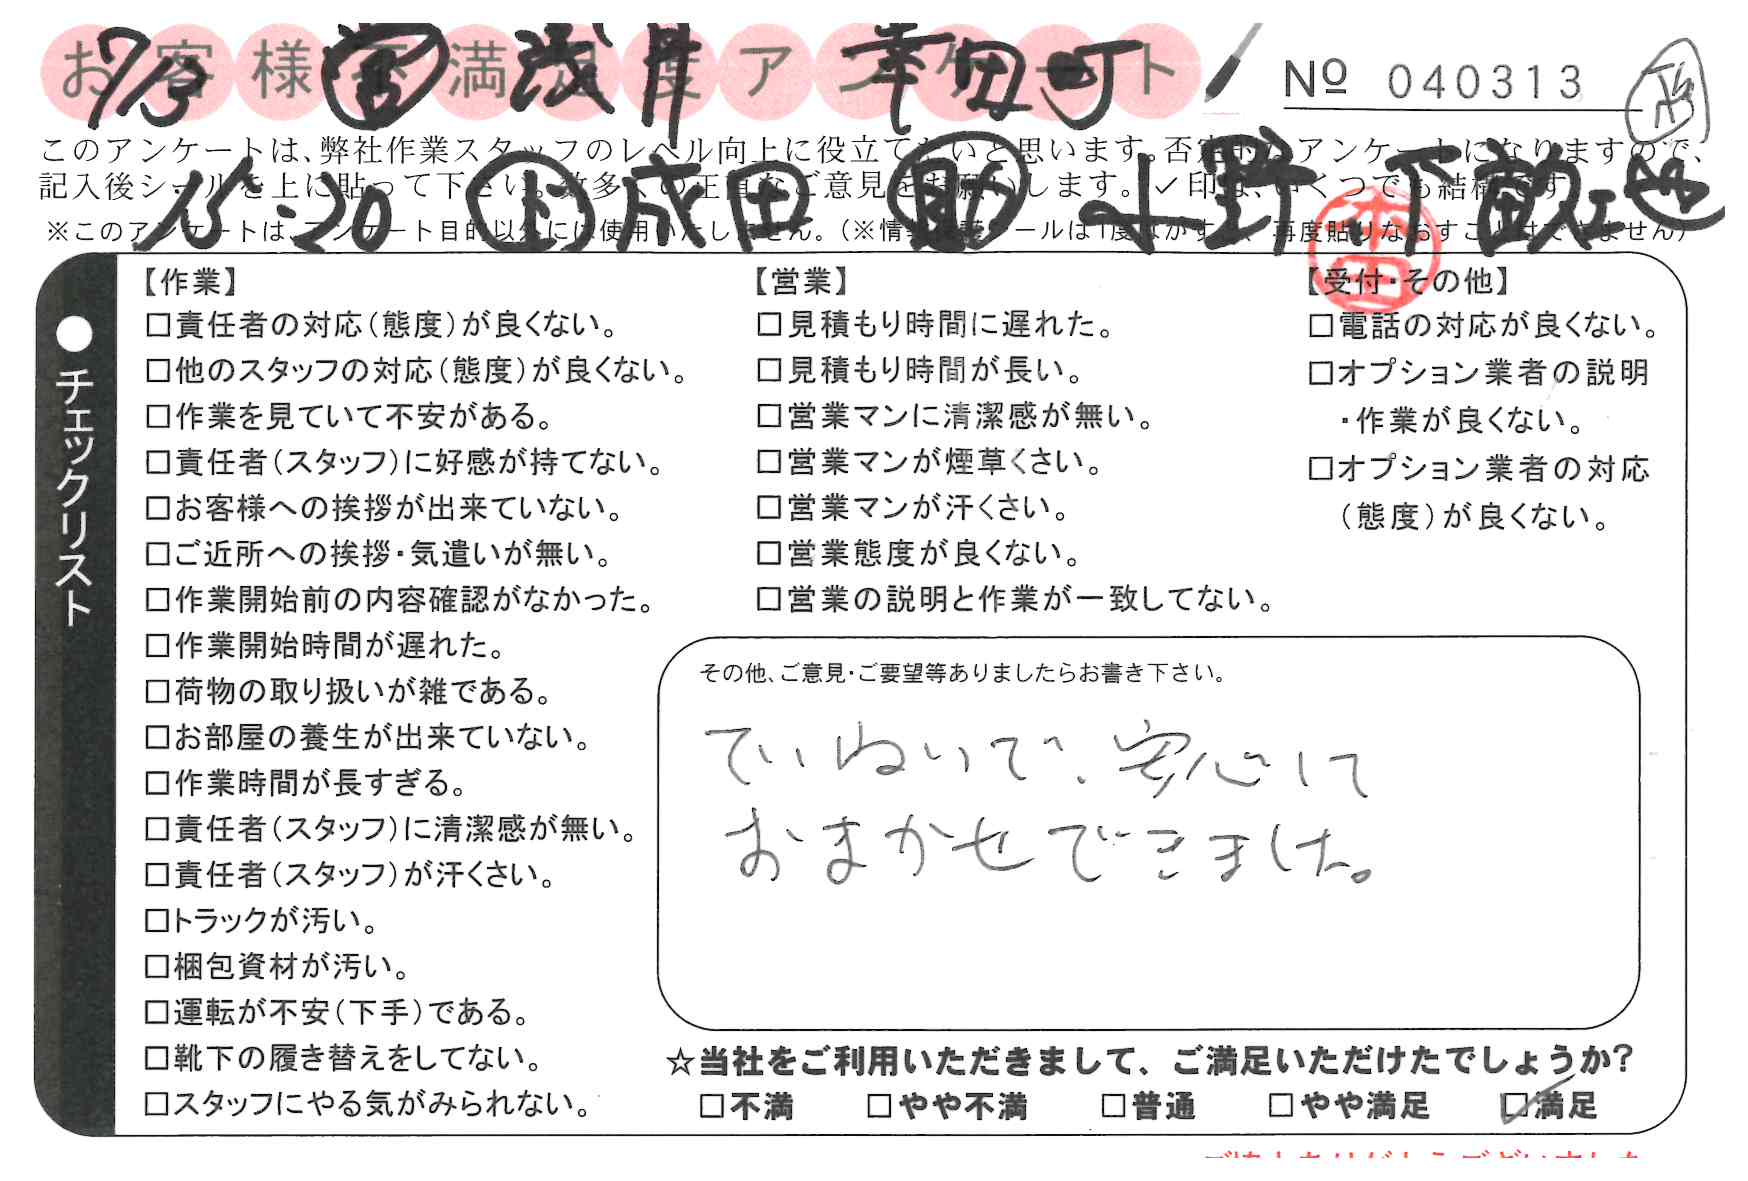 お客様不満足度アンケート
7/13 営 浅井 幸田町
№ 040313
このアンケートは、弊社作業スタッフのレベル向上に役立てたいと思います。否定的なアンケートになりますので、
記入後シールを上に貼って下さい。数多くの正直なご意見をお願いします。✓印は、いくつでも結構です。
15:20 成田 助 小野 下畝
※このアンケートは、アンケート目的以外には使用いたしません。(※情報保護シールは1度はがすと、再度貼りなおすことはできません)
●チェックリスト
【作業】
□責任者の対応(態度)が良くない。
□他のスタッフの対応(態度)が良くない。
□作業を見ていて不安がある。
□責任者(スタッフ)に好感が持てない。
□お客様への挨拶が出来ていない。
□ご近所への挨拶・気遣いが無い。
□作業開始前の内容確認がなかった。
□作業開始時間が遅れた。
□荷物の取り扱いが雑である。
□お部屋の養生が出来ていない。
□作業時間が長すぎる。
□責任者(スタッフ)に清潔感が無い。
□責任者(スタッフ)が汗くさい。
□トラックが汚い。
□梱包資材が汚い。
□運転が不安(下手)である。
□靴下の履き替えをしてない。
□スタッフにやる気がみられない。
【営業】
□見積もり時間に遅れた。
□見積もり時間が長い。
□営業マンに清潔感が無い。
□営業マンが煙草くさい。
□営業マンが汗くさい。
□営業態度が良くない。
□営業の説明と作業が一致してない。
【受付・その他】
□電話の対応が良くない。
□オプション業者の説明
・作業が良くない。
□オプション業者の対応
(態度)が良くない。
その他、ご意見・ご要望等ありましたらお書き下さい。
ていねいで、安心して
おまかせできました。
☆当社をご利用いただきまして、ご満足いただけたでしょうか?
□不満 □やや不満 □普通 □やや満足 ☑満足
ご協力ありがとうございました